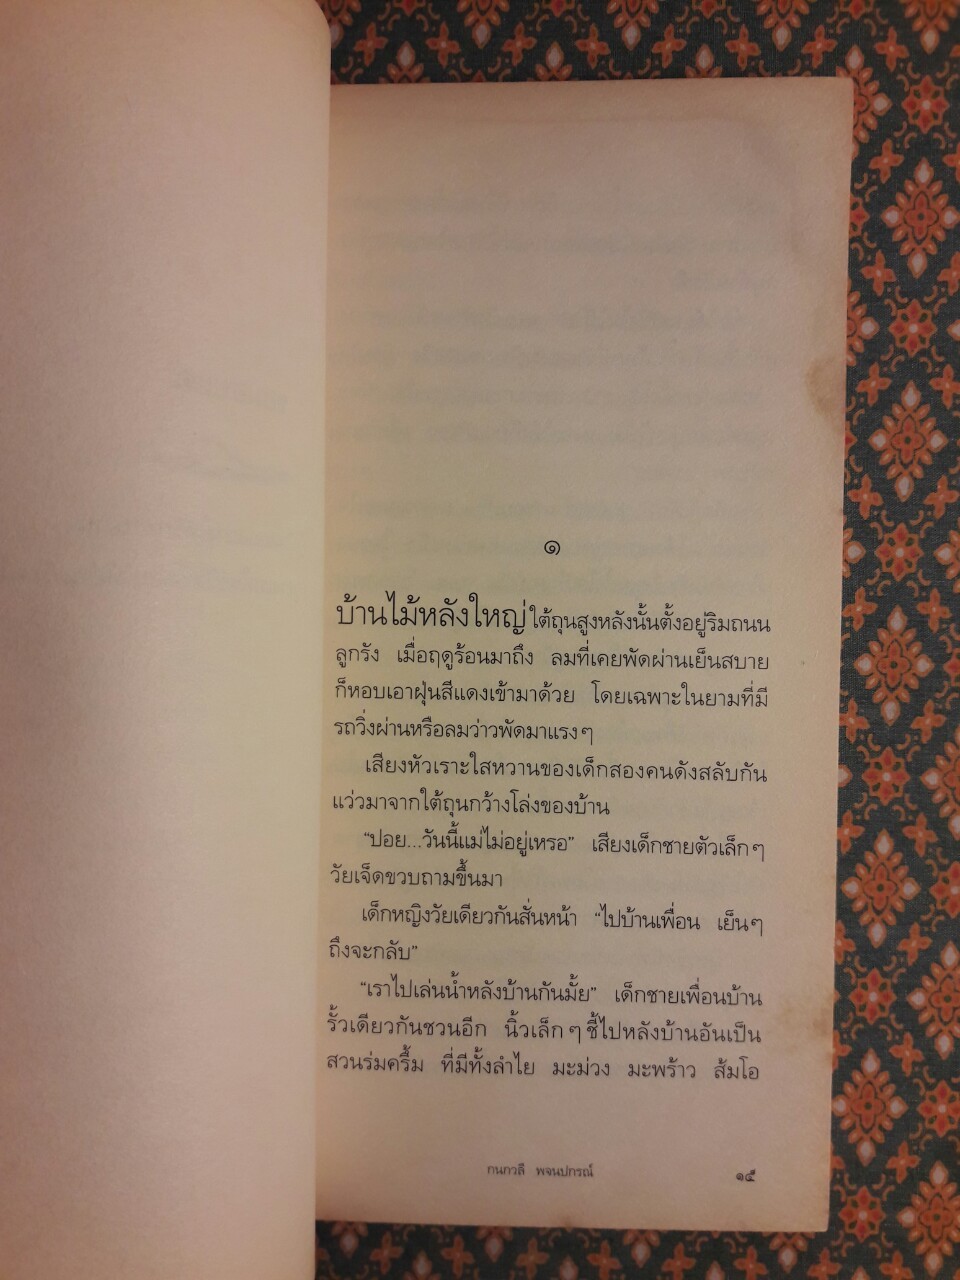 ๑
บ้านไม้หลังใหญ่ใต้ถุนสูงหลังนั้นตั้งอยู่ริมถนน
ลูกรัง เมื่อฤดูร้อนมาถึง ลมที่เคยพัดผ่านเย็นสบาย
ก็หอบเอาฝุ่นสีแดงเข้ามาด้วย โดยเฉพาะในยามที่มี
รถวิ่งผ่านหรือลมว่าวพัดมาแรงๆ
เสียงหัวเราะใสหวานของเด็กสองคนดังสลับกัน
แว่วมาจากใต้ถุนกว้างโล่งของบ้าน
“ปอย...วันนี้แม่ไม่อยู่เหรอ” เสียงเด็กชายตัวเล็กๆ
วัยเจ็ดขวบถามขึ้นมา
เด็กหญิงวัยเดียวกันสั่นหน้า “ไปบ้านเพื่อน เย็นๆ
ถึงจะกลับ”
“เราไปเล่นน้ำหลังบ้านกันมั้ย” เด็กชายเพื่อนบ้าน
รั้วเดียวกันชวนอีก นิ้วเล็กๆ ชี้ไปหลังบ้านอันเป็น
สวนร่มครึ้ม ที่มีทั้งลำไย มะม่วง มะพร้าว ส้มโอ
กนกวลี พจนปกรณ์
๑๕